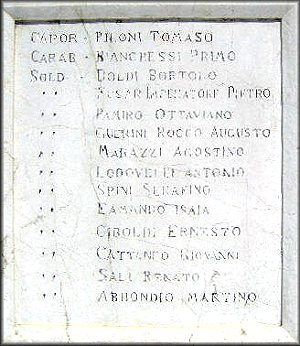 CAPOR - PILONI TOMASO
CARAB - BIANCHESSI PRIMO
SOLD - DOLDI BORTOLO
" IMPERATORE PIETRO
" OTTAVIANO
" GUERINI ROCCO AUGUSTO
" MARAZZI AGOSTINO
" ANTONIO
" SPINI SERAFINO
" ISAIA
" CIBOLDI ERNESTO
" CATTANEO GIOVANNI
" SALI RENATO
" ABBONDIO MARTINO